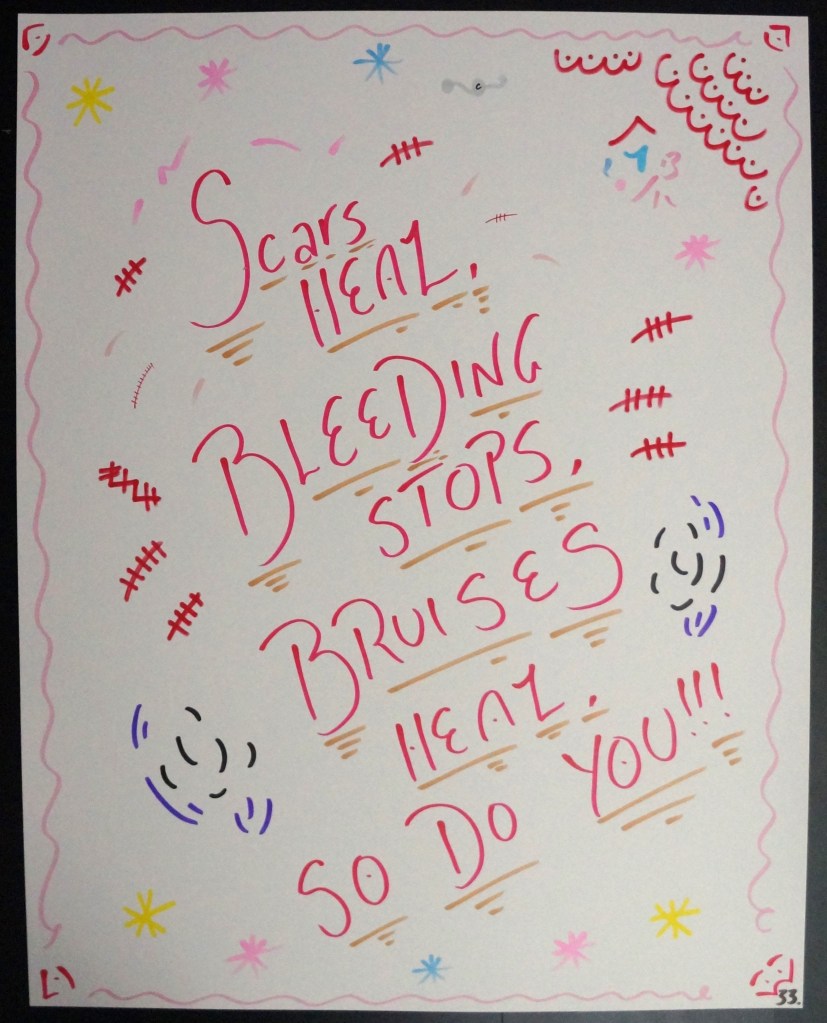 Scars
HEAL.
BLEEDING
STOPS.
BRUISES
HEAL.
SO DO YOU!!!
33.